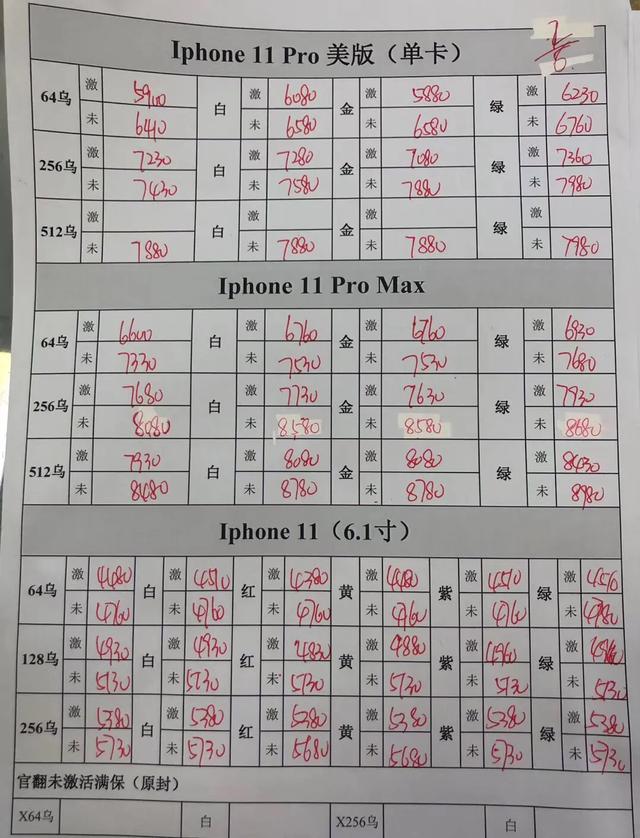 2/6
Iphone 11 Pro 美版（单卡）
64乌 激 5900 白 激 6080 金 激 5880 绿 激 6230
未 6410 未 6580 未 6580 未 6760
256乌 激 7230 白 激 7280 金 激 7080 绿 激 7360
未 7430 未 7580 未 7880 未 7980
512乌 激 白 激 金 激 绿 激
未 7880 未 7880 未 7880 未 7980
Iphone 11 Pro Max
64乌 激 6600 白 激 6760 金 激 6760 绿 激 6930
未 7330 未 7530 未 7530 未 7680
256乌 激 7680 白 激 7730 金 激 7630 绿 激 7930
未 8080 未 8580 未 8580 未 8680
512乌 激 7930 白 激 8080 金 激 8080 绿 激 8430
未 8480 未 8780 未 8780 未 8980
Iphone 11（6.1寸）
64乌 激 4480 白 激 4510 红 激 4380 黄 激 4480 紫 激 4510 绿 激 4510
未 4760 未 4760 未 4760 未 4760 未 4760 未 4780
128乌 激 4930 白 激 4930 红 激 4830 黄 激 4880 紫 激 4960 绿 激 4960
未 5130 未 5130 未 5130 未 5130 未 5130 未 5130
256乌 激 5380 白 激 5380 红 激 5380 黄 激 5380 紫 激 5380 绿 激 5380
未 5730 未 5730 未 5680 未 5680 未 5730 未 5730
官翻未激活满保（原封）
X64乌 白 X256乌 白